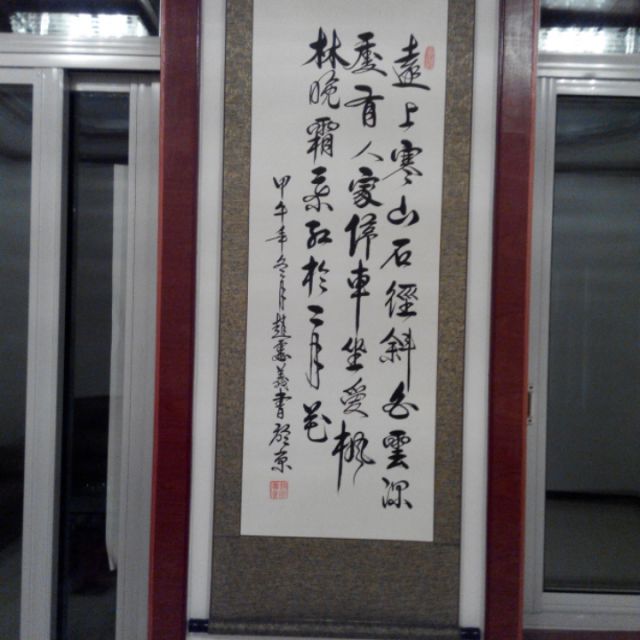 遠上寒山石徑斜白雲深
處有人家停車坐愛楓
林晚霜葉紅於二月花
甲午年冬月趙義書京